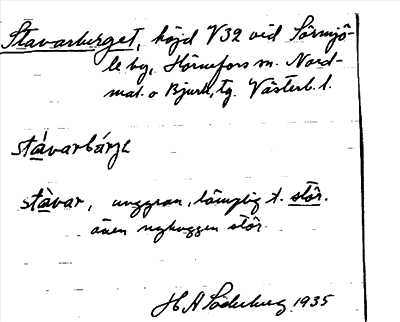 Stavarberget, höjd V32 vid Sörmjö-
le by, Hörnefors sn. Nord-
mal. o Bjurh. tg. Västerb. l.
stávarbárjə
stàvar, unggran, lämplig t. stör.
även nyhuggen stör.
H A Söderberg 1935